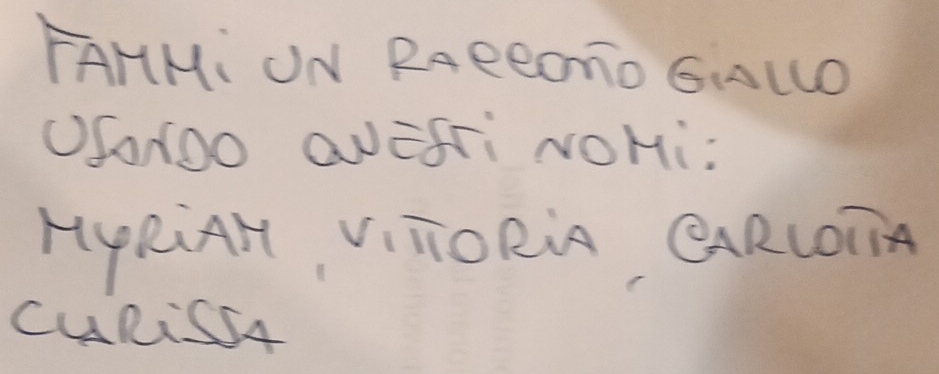 FAMMi UN RACCONTO GiALLO
USANDO QUESTi NOMi:
MYRiAM, ViTTORiA, CARLOTTA
CLARiSSA